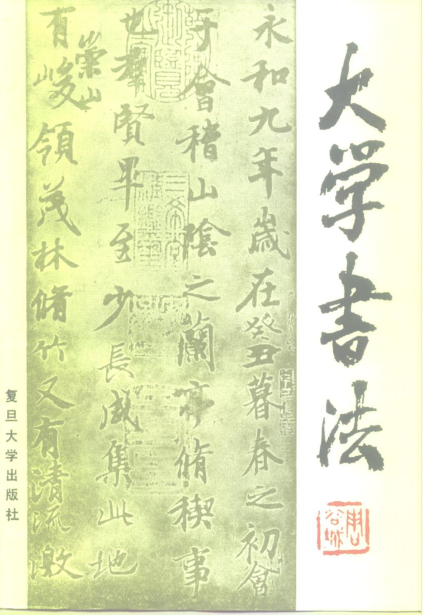 大学書法
周谷城
永和九年歳在癸丑暮春之初會
于會稽山陰之蘭亭脩稧事
也羣賢畢至少長咸集此地
有崇山峻領茂林脩竹又有清流激
复旦大学出版社